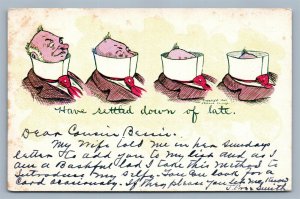 Have settled down of late.
Dear Cousin Bessie.
My Wife told me in her Sundays
letter to add you to my list and as I
am a Bashful Lad I take this method to
introduce my self. You can look for a
Card occasionaly. If they please you let me know
Smith